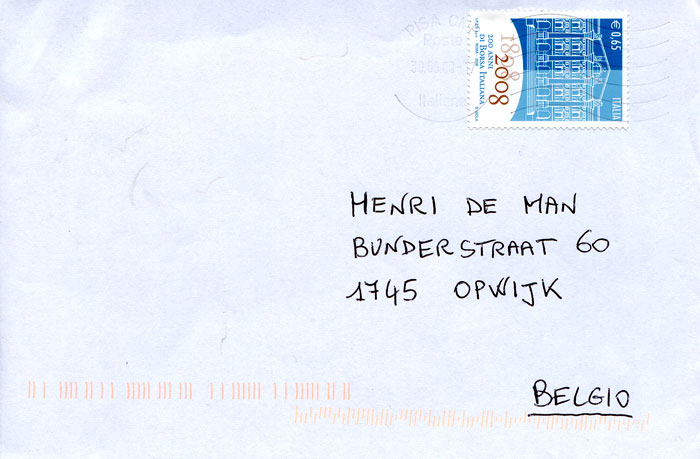 PISA C
Poste
Italiane
€ 0,65
ITALIA
1808
2008
200 ANNI
DI BORSA ITALIANA
HENRI DE MAN
BUNDERSTRAAT 60
1745 OPWIJK
BELGIO